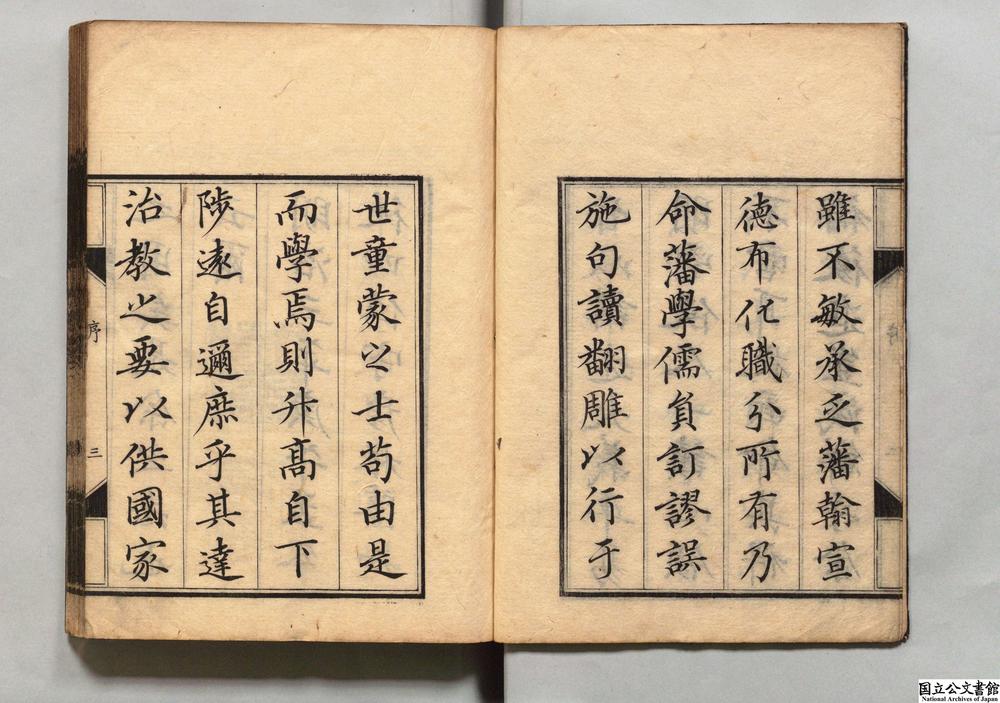 雖不敏承乏藩翰宣
德布化職分所有乃
命藩學儒員訂謬誤
施句讀翻雕以行于
世童蒙之士苟由是
而學焉則升高自下
陟遠自邇庶乎其達
治教之要以供國家
序
三
国立公文書館
National Archives of Japan